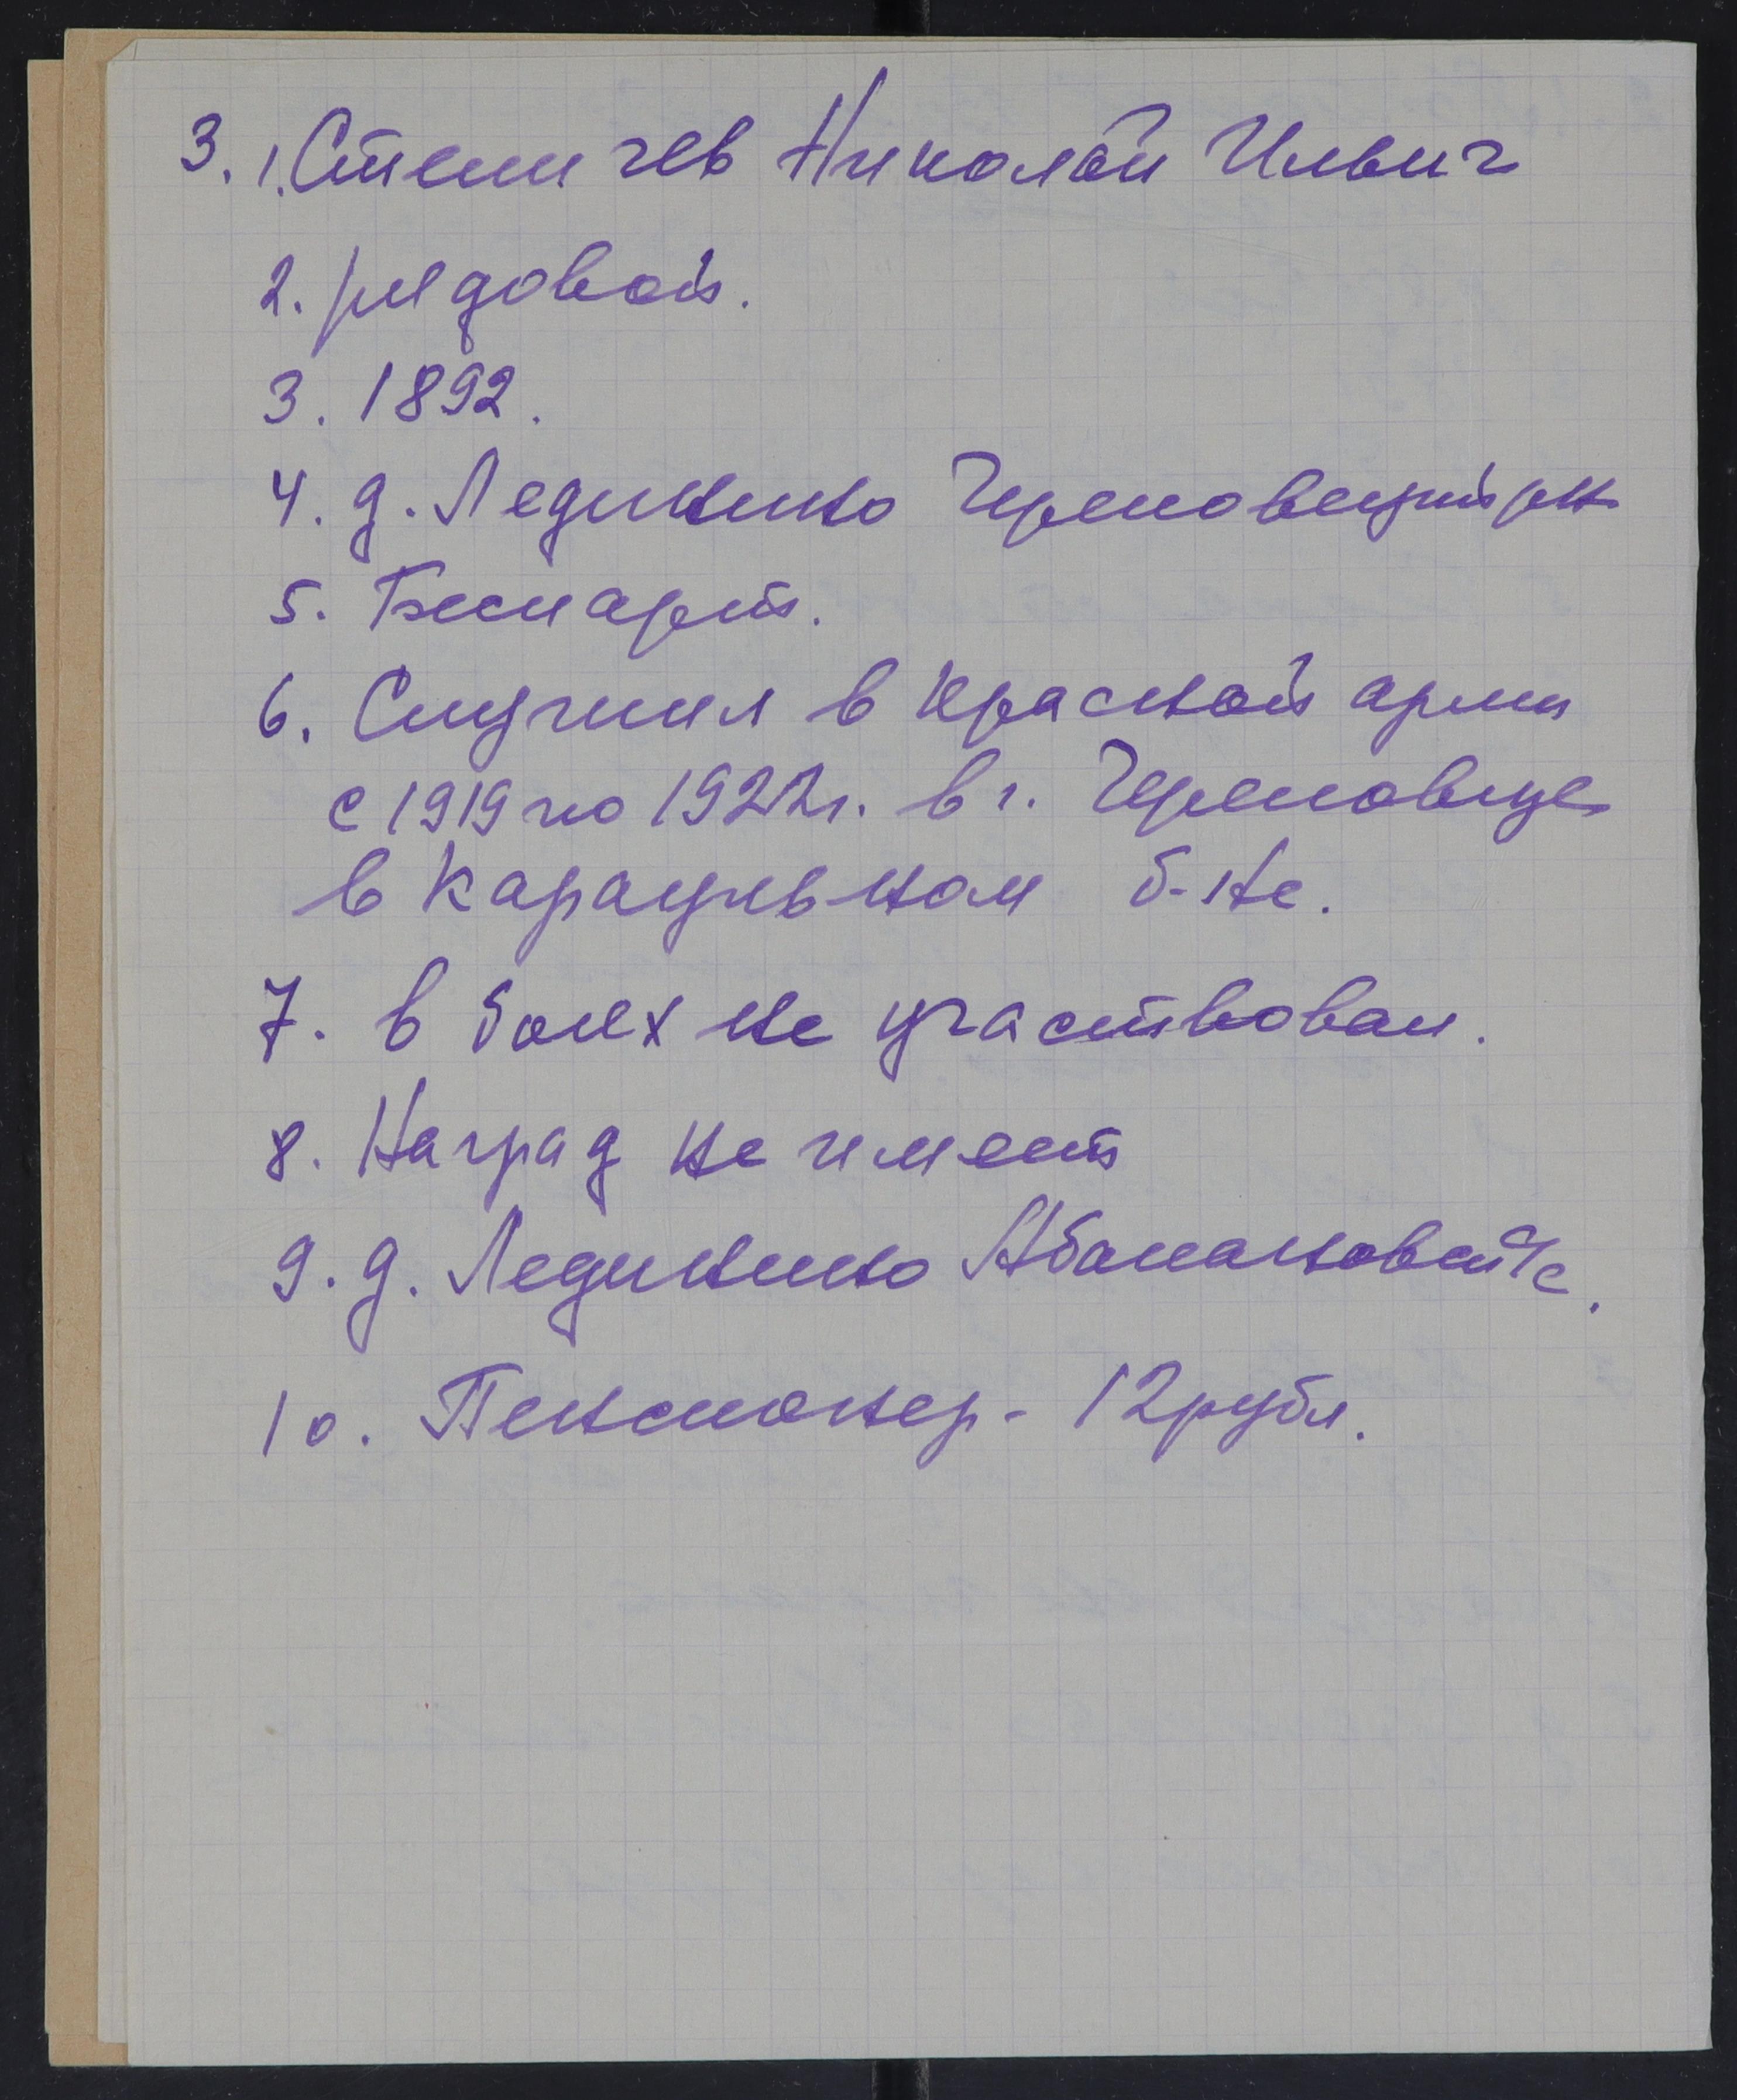 3. 1. Степичев Николай Ильич
2. рядовой.
3. 1892.
4. д. Лединино Череповецкий рн
5. Беспарт.
6. Служил в Красной арми
с 1919 по 1922г. в г. Череповце
в караульном б-не.
7. в боях не участвовал.
8. Наград не имеет
9. д. Лединино Абакановский с/с.
10. Пенсионер - 12 рубл.